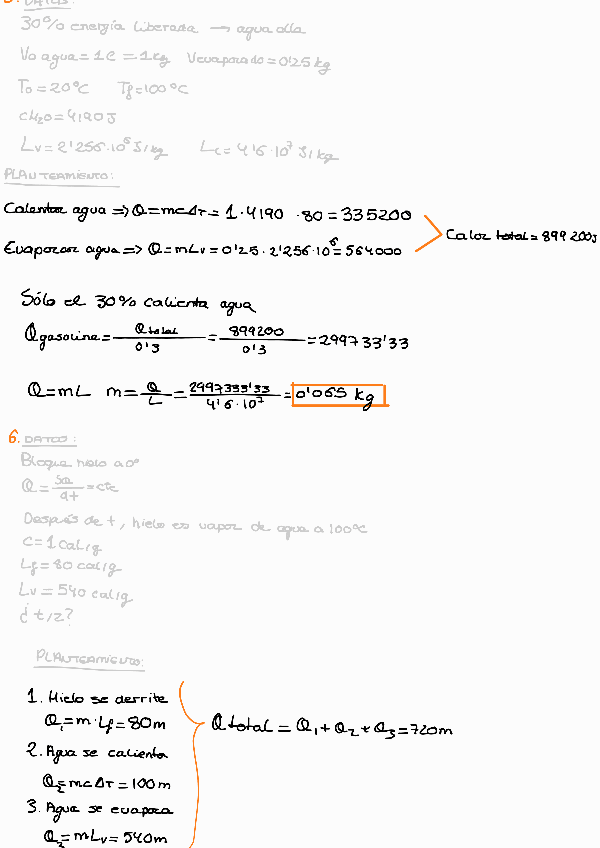 5. DATOS:
30% energía liberada → agua olla
Vo agua = 1l = 1kg Vevaporado = 0'25 kg
To = 20°C Tf = 100°C
cH2O = 4190J
Lv = 2'256·10⁶ J/kg Lc = 4'6·10⁷ J/kg
PLANTEAMIENTO:
Calentar agua ⇒ Q = mcΔT = 1·4190·80 = 335200
Calor total = 899200J
Evaporar agua ⇒ Q = mLv = 0'25·2'256·10⁶ = 564000
Sólo el 30% calienta agua
Qgasolina = Qtotal/0'3 = 899200/0'3 = 299733'33
Q = mL m = Q/L = 2997333'33/4'6·10⁷ = 0'065 kg
6. DATOS:
Bloque hielo a 0°
= cte
Después de t, hielo es vapor de agua a 100°C
c = 1 cal/g
Lf = 80 cal/g
Lv = 540 cal/g
¿t/2?
PLANTEAMIENTO:
1. Hielo se derrite
Q₁ = m·Lf = 80m
Qtotal = Q₁ + Q₂ + Q₃ = 720m
2. Agua se calienta
Q₂ = mcΔT = 100m
3. Agua se evapora
Q₃ = mLv = 540m